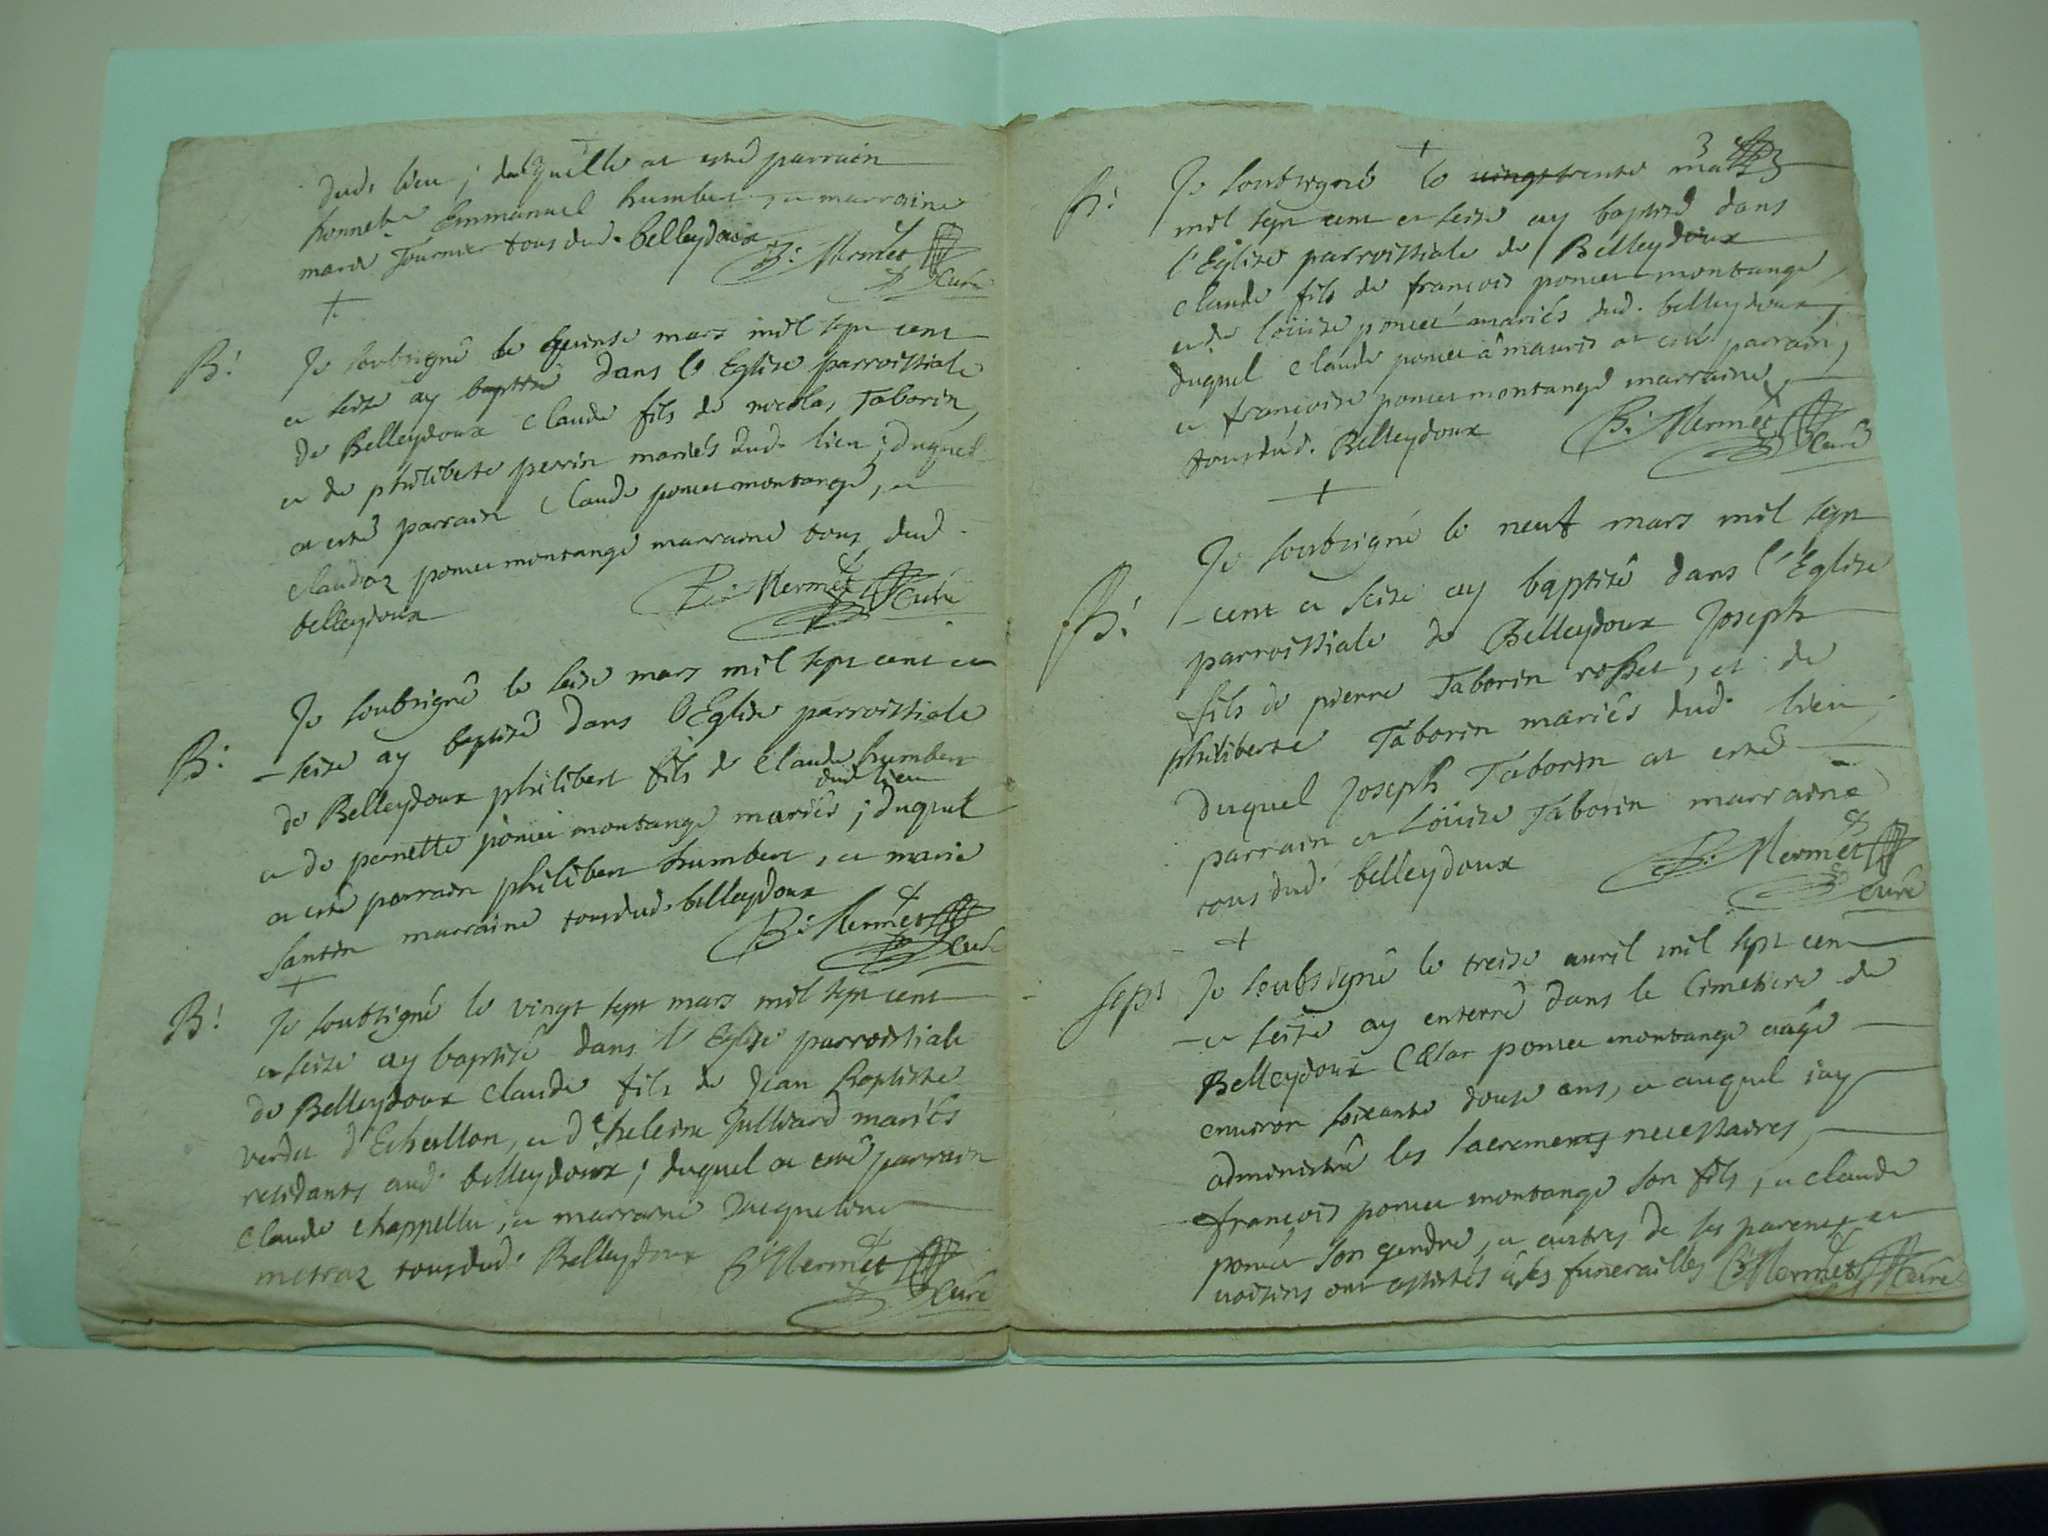 dud. lieu ; de laquelle at esté parrain
honnete Emmanuel humbert, et marraine
marie Tournier tous dud. belleydoux
B: Mermet Curé
B: Je soubsigné le quinse mars mil sept cent
et seise ay baptisé dans l'Eglise parroissiale
de Belleydoux Claude fils de nicolas Taborin,
et de philiberte perrin mariés dud. lieu ; duquel
at esté parrain Claude poncet montange, et
claudaz poncet montange marraine tous dud.
belleydoux
B: Mermet Curé
B: Je soubsigné le seise mars mil sept cent et
- seise ay baptisé dans l'Eglise parroissiale
de Belleydoux philibert fils de Claude humbert
et de pernette poncet montange mariés dud. lieu ; duquel
at esté parrain philibert humbert, et marie
santin marraine tous dud. belleydoux
B: Mermet Curé
B: Je soubsigné le vingt sept mars mil sept cent
et seise ay baptisé dans l'Eglise parroissiale
de Belleydoux Claude fils de Jean Baptiste
verdet d'Echallon, et d'heleine Julliard mariés
residants aud. belleydoux ; duquel at esté parrain
Claude chappellu, et marraine Jacqueline
metraz tous dud. Belleydoux B: Mermet
Curé
3
B: Je soubsigné le vingt trente mars
mil sept cent et seise ay baptisé dans
l'Eglise parroissiale de Belleydoux
Claude fils de françois poncet montange,
et de Loüise poncet mariés dud. belleydoux,
duquel Claude poncet à mauris at esté parrain,
et françoise poncet montange marraine,
tous dud. Belleydoux B: Mermet
Curé
B: Je soubsigné le neuf mars mil sept
- cent et seise ay baptisé dans l'Eglise
parroissiale de Belleydoux Joseph
fils de pierre Taborin rosset, et de
philiberte Taborin mariés dud. lieu,
duquel Joseph Taborin at esté
parrain et Loüise Taborin marraine
tous dud. belleydoux B: Mermet
Curé
sep: Je soubsigné le treise avril mil sept cent
- et seise ay enterré dans le Cimetiere de
Belleydoux Cesar poncet montange aagé
environ soixante douse ans, et auquel jay
administré les sacrements necessaires,
françois poncet montange son fils, et claude
poncet son gendre, et autres de ses parents et
voisins ont assistés à ses funerailles B: Mermet Curé